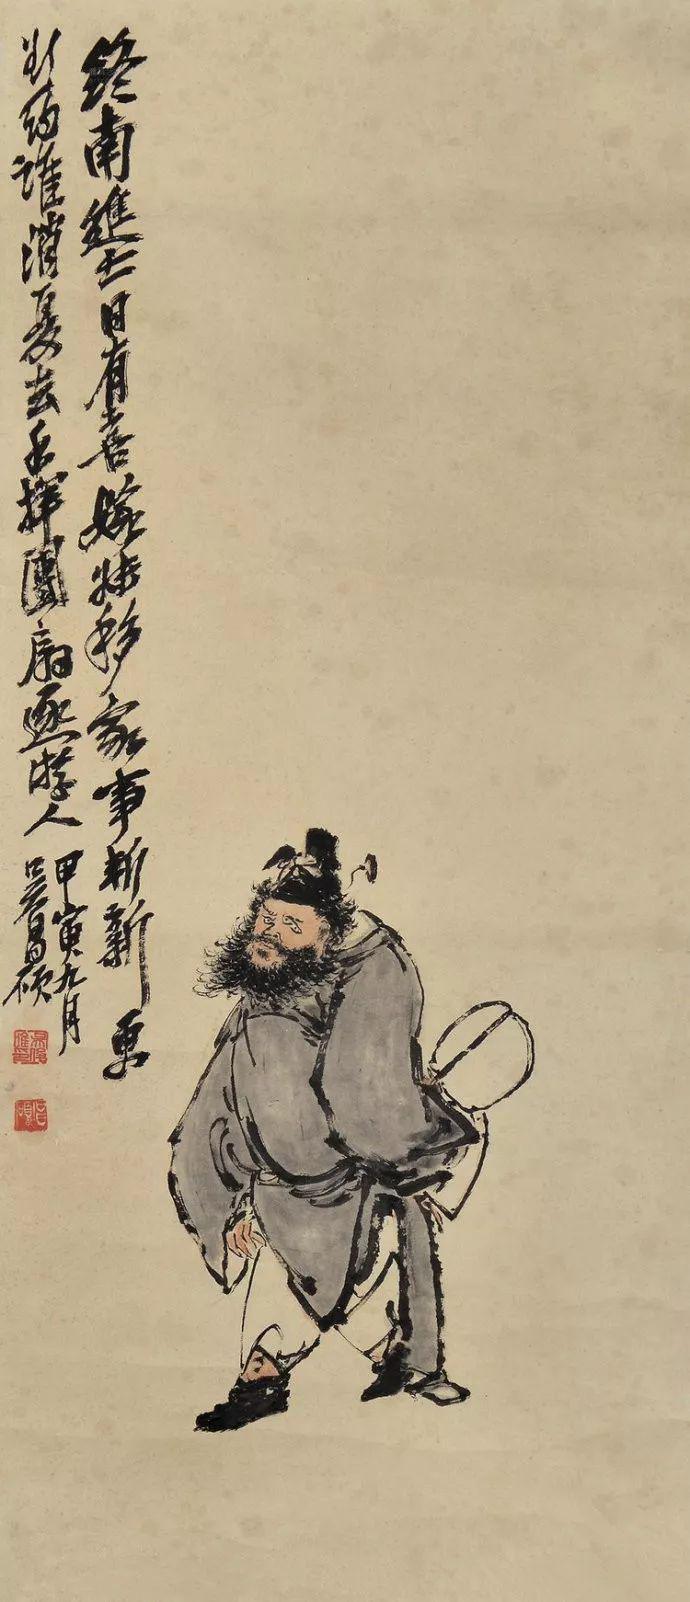 終南進士日有喜嫁妹移家事斬新更
誰消夏去手揮團扇逐游人
甲寅九月
吳昌碩